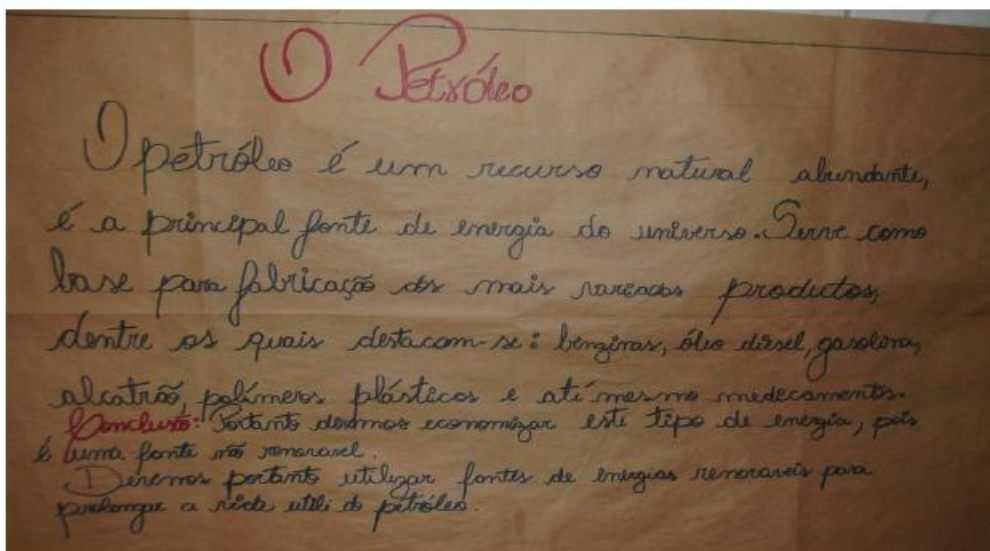 O Petróleo
O petróleo é um recurso natural abundante,
é a principal fonte de energia do universo. Serve como
base para fabricação dos mais variados produtos,
dentre os quais destacam-se: benzinas, óleo diesel, gasolina,
alcatrão, polímeros plásticos e até mesmo medicamentos.
Conclusão: Portanto devemos economizar este tipo de energia, pois
é uma fonte não renovavel.
Devemos portanto utilizar fontes de energias renovaveis para
prolongar a vida utili do petróleo.